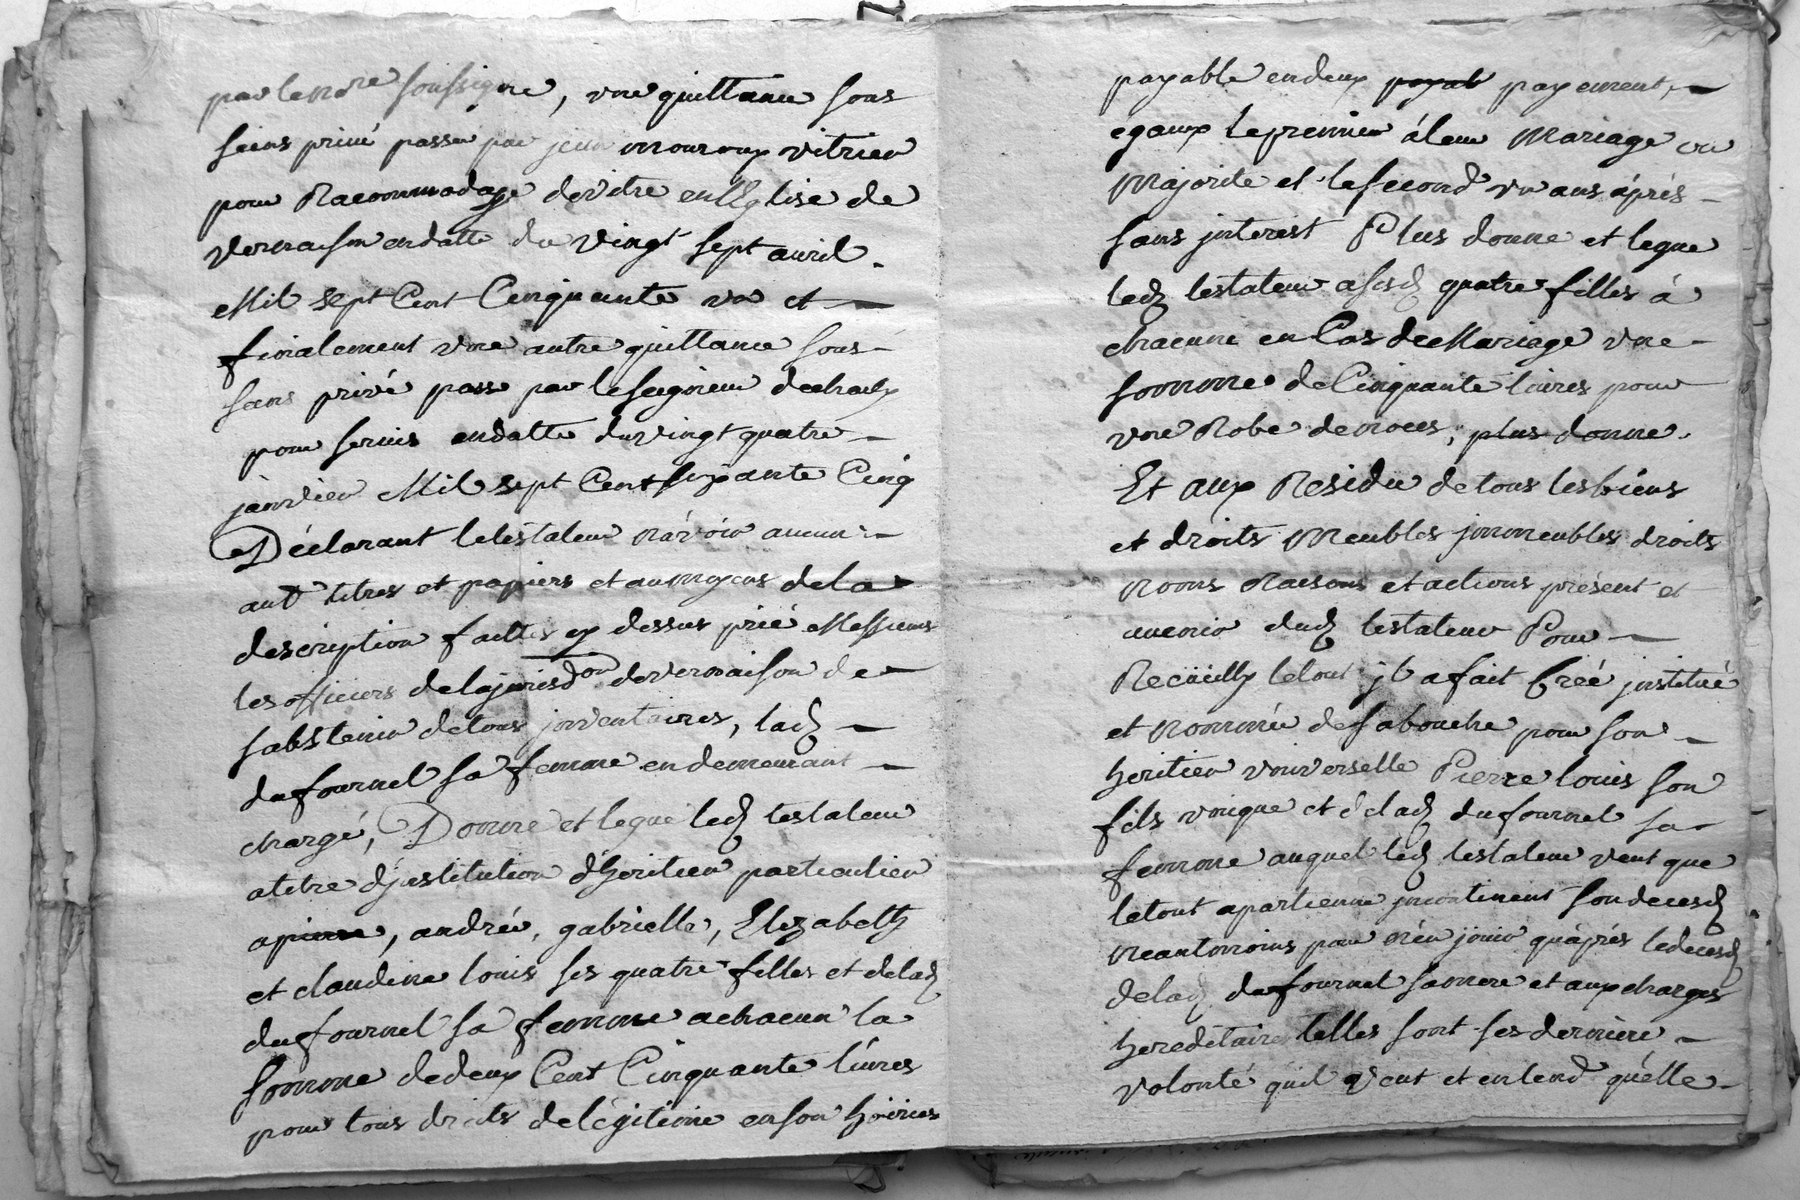 par le no.re soussigne, vne quittance sous
seins privé passée par jean mouroux vitrier
pour Racommodage de vitre en lEglise de
vernaison en datte du vingt sept avril
Mil sept Cent Cinquante vn et
finalement vne autre quittance sous
sens privé passe par le seigneur de
pour servis en datte du vingt quatre
janvier Mil sept Cent soixante Cinq
Déclarant le testateur n'avoir aucun
autt titres et papiers et au moyens de la
description faittes cy dessus prié Messieurs
les officiers de la jurisd.on de vernaison de
sabstenir de tous jnventaires, lad
dufournel sa femme en demeurant
chargé, Donne et legue led testateur
a titre d'jnstitution d'heritier particulier
a, andrée, gabrielle, Elizabeth
et claudine louis ses quatre filles et de lad
dufournel sa femme a chacun la
somme de deux Cent Cinquante livres
pour tous droits de légitime en son hoiries
payable en deux payab payement,
egaux le premier á leur Mariage ou
Majorite et le second vn ans áprés
sans jnterest Plus donne et legue
led testateur a sesd quatre filles á
chacune en Cas de Mariage vne
somme de Cinquante livres pour
vne Robe de noces, plus donne
Et aux Residu de tous les biens
et droits Meubles jmmeubles droits
Noms Raisons et actions présent et
avenir dud testateur Pour
Recüeilly le tout jl a fait Créé jnstitué
et nommée de sa bouche pour son
heritier vniverselle Pierre louis son
fils vnique et de lad dufournel sa
femme auquel led testateur veut que
le tout apartienne jncontinent son decesd
neantmoins pour n'en jouir qu'aprés le decesd
de lad dufournel sa mere et aux charges
hereditaires telles sont ses derniere
volonté quil veut et entend qu'elle